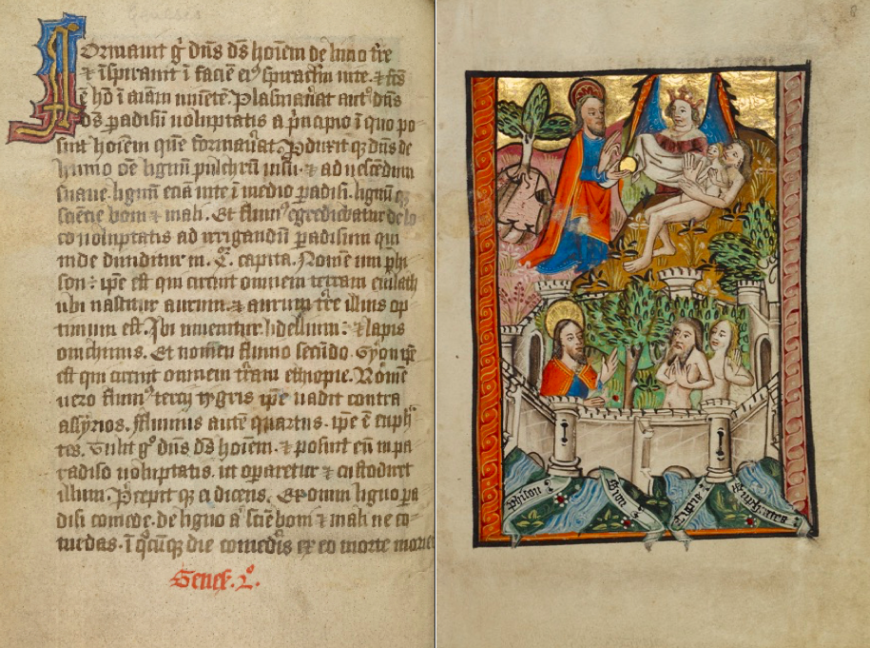 Formauit g̊ dn̄s ds̄ hoīem de limo tr̄e
⁊ īspirauit ī faciē eiꝰ spiraclm̄ uite. ⁊ fcs̄
ē hō ī aīam uiuētē. Plasmauat aut̄ dn̄s
ds̄ ꝑadisū uoluptatis a pͥncipio ī quo po
suit hoīem quē formauat. Ꝓduxitqꝫ dn̄s de
humo oē lignū pulchrū uisu. ⁊ ad uescēdum
suaue. lignū eciā uite ī medio ꝑadisi. lignūqꝫ
sciēcie boni ⁊ mali. Et fluuiꝰ egrediebatur de lo
co uoluptatis ad irrigandū ꝑadisum qui
inde diuiditur in .iiijor. capita. Nomē uni phi
son: ip̄e est qui circuit omnem terram euilath
ubi nascitur aurum. ⁊ aurum tr̄e illius op
timum est. Ibi inuenitur bdellium: ⁊ lapis
onichinus. Et nomen fluuio secūdo. Gyon ip̄e
est qui circuit omnem tr̄am ethiopie. Nomē
uero fluuiꝰ tercij tygris ip̄e uadit contra
assyrios. Fluuius autē quartus. ip̄e ē euphꝰ
tes. Tulit g̊ dn̄s ds̄ hoīem. ⁊ posuit eū in pa
radiso uoluptatis. ut operaretur ⁊ custodiret
illum. P̄cepitqꝫ ei dicens. Ex omni ligno pa
disi comede. de ligno aͭ sciē boni ⁊ mali ne co-
medas. ī qͦcūqꝫ die comedis̄ ex eo morte morie
Genes. 2o.
Phison
Gion
Tigris
Eufrates